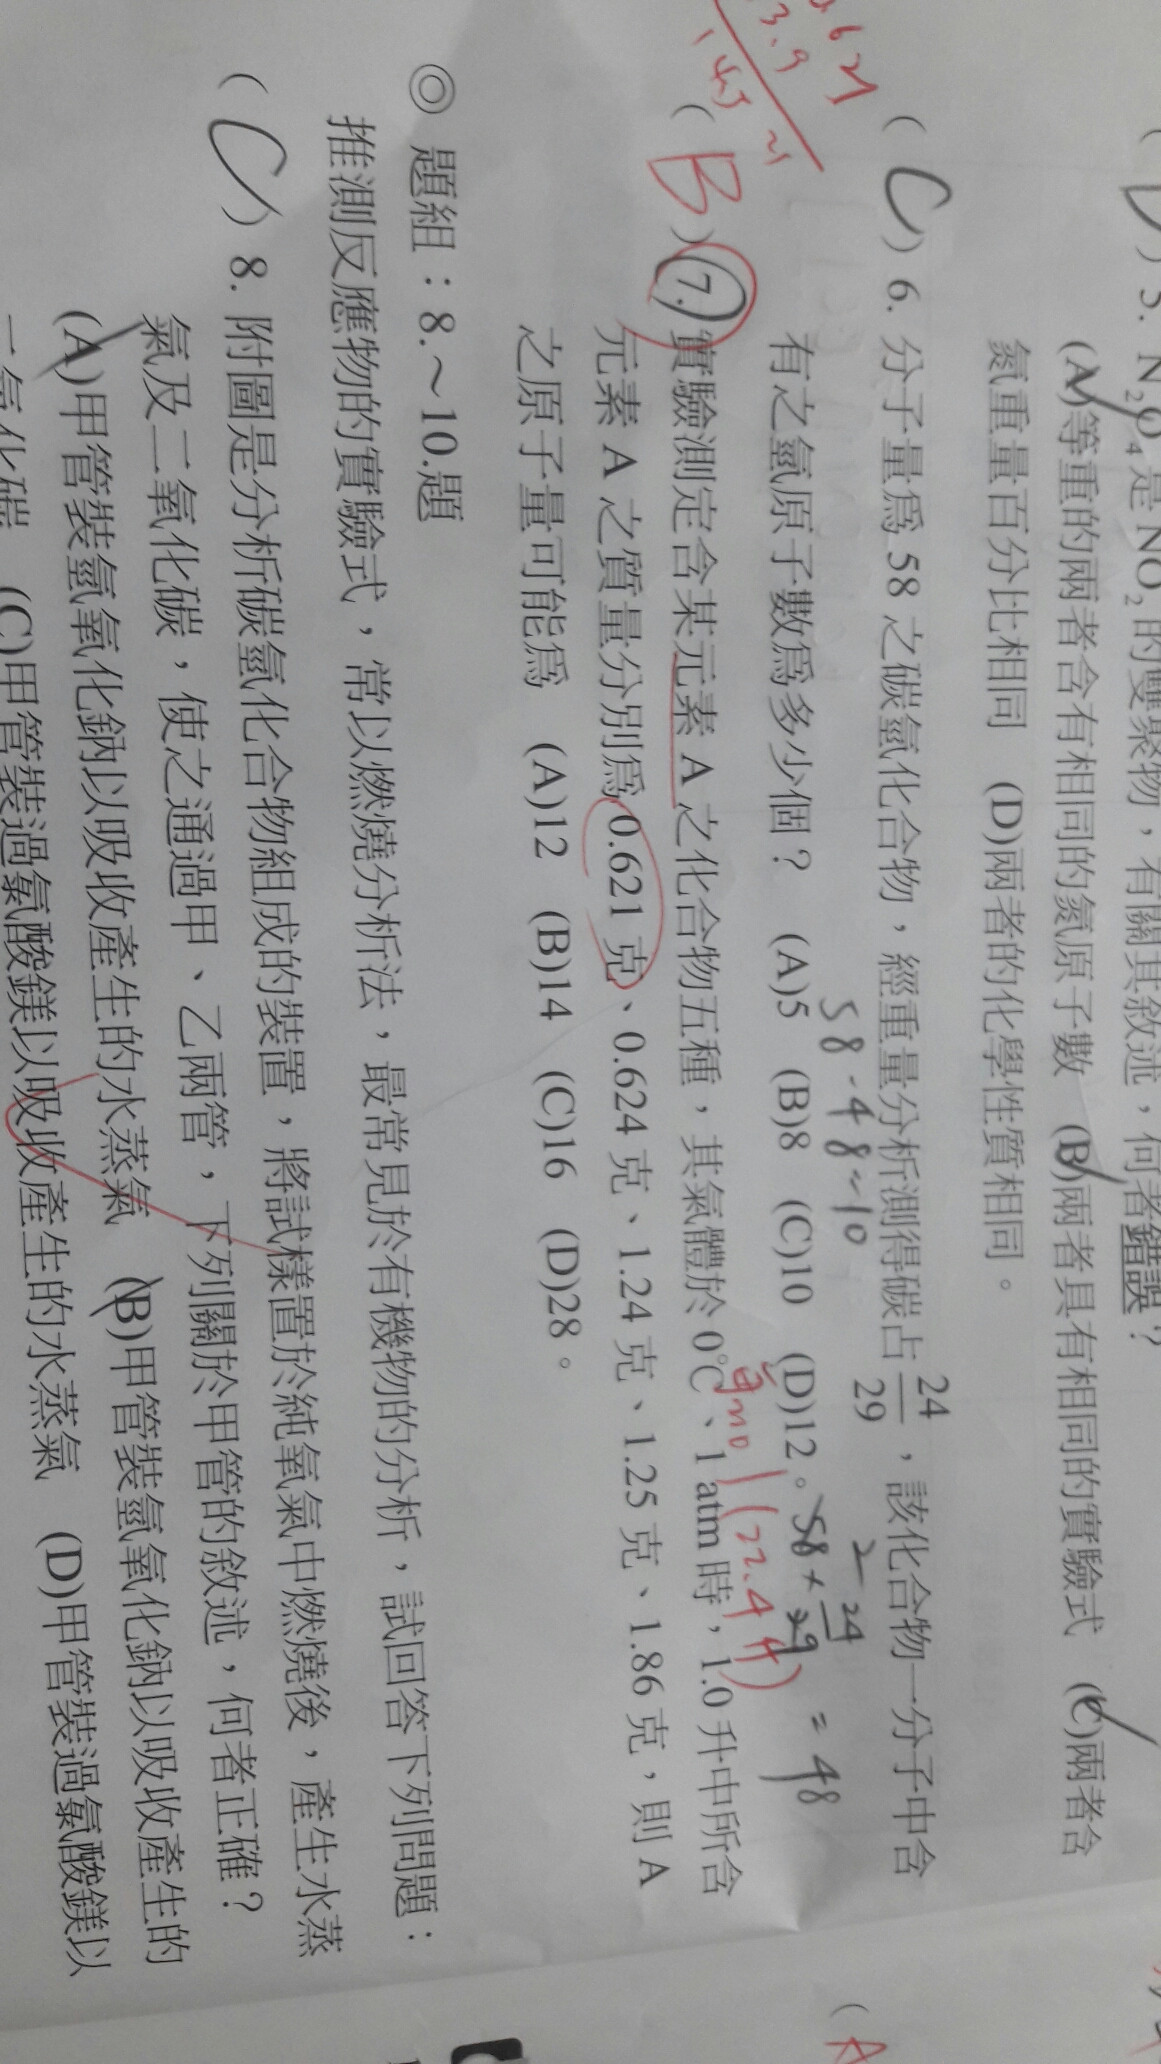 ) 5. N₂O₄是 NO₂的雙聚物，有關其敘述，何者錯誤？
(A)等重的兩者含有相同的氮原子數 (B)兩者具有相同的實驗式 (C)兩者含
氮重量百分比相同 (D)兩者的化學性質相同。
( C ) 6. 分子量為 58 之碳氫化合物，經重量分析測得碳占 24/29，該化合物一分子中含
有之氫原子數為多少個？ (A)5 (B)8 (C)10 (D)12。
58-48=10
58×24/29=48
2
621
3.9
( B ) 7. 實驗測定含某元素 A 之化合物五種，其氣體於 0℃、1 atm 時，1.0 升中所含
(22.4升)
元素 A 之質量分別為 0.621 克、0.624 克、1.24 克、1.25 克、1.86 克，則 A
之原子量可能為 (A)12 (B)14 (C)16 (D)28。
◎ 題組：8.～10.題
推測反應物的實驗式，常以燃燒分析法，最常見於有機物的分析，試回答下列問題：
( C ) 8. 附圖是分析碳氫化合物組成的裝置，將試樣置於純氧氣中燃燒後，產生水蒸
氣及二氧化碳，使之通過甲、乙兩管，下列關於甲管的敘述，何者正確？
(A)甲管裝氫氧化鈉以吸收產生的水蒸氣 (B)甲管裝氫氧化鈉以吸收產生的
二氧化碳 (C)甲管裝過氯酸鎂以吸收產生的水蒸氣 (D)甲管裝過氯酸鎂以
( A